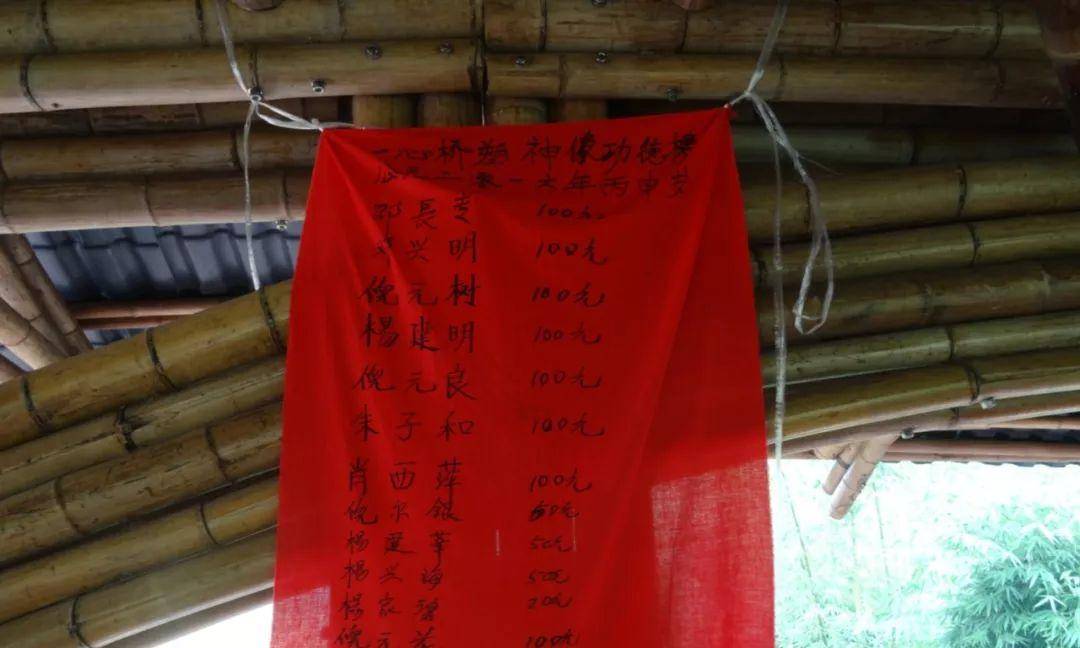 一心桥塑神像功德榜
二零一六年丙申岁
邓長支 100元
邓兴明 100元
倪元树 100元
楊建明 100元
倪元良 100元
朱子和 100元
肖西萍 100元
倪尔銀 60元
楊運華 50元
楊兴海 50元
楊家 20元
倪元 100元